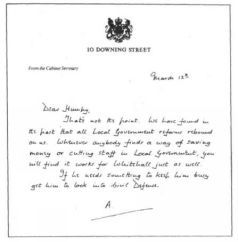 10 DOWNING STREET
From the Cabinet Secretary
March 12th
Dear Humpy,
That's not the point. We have found in
the past that all Local Government reforms rebound
on us. Whenever anybody finds a way of saving
money or cutting staff in Local Government, you
will find it works for Whitehall just as well.
If he needs something to keep him busy
get him to look into Civil Defence.
A.